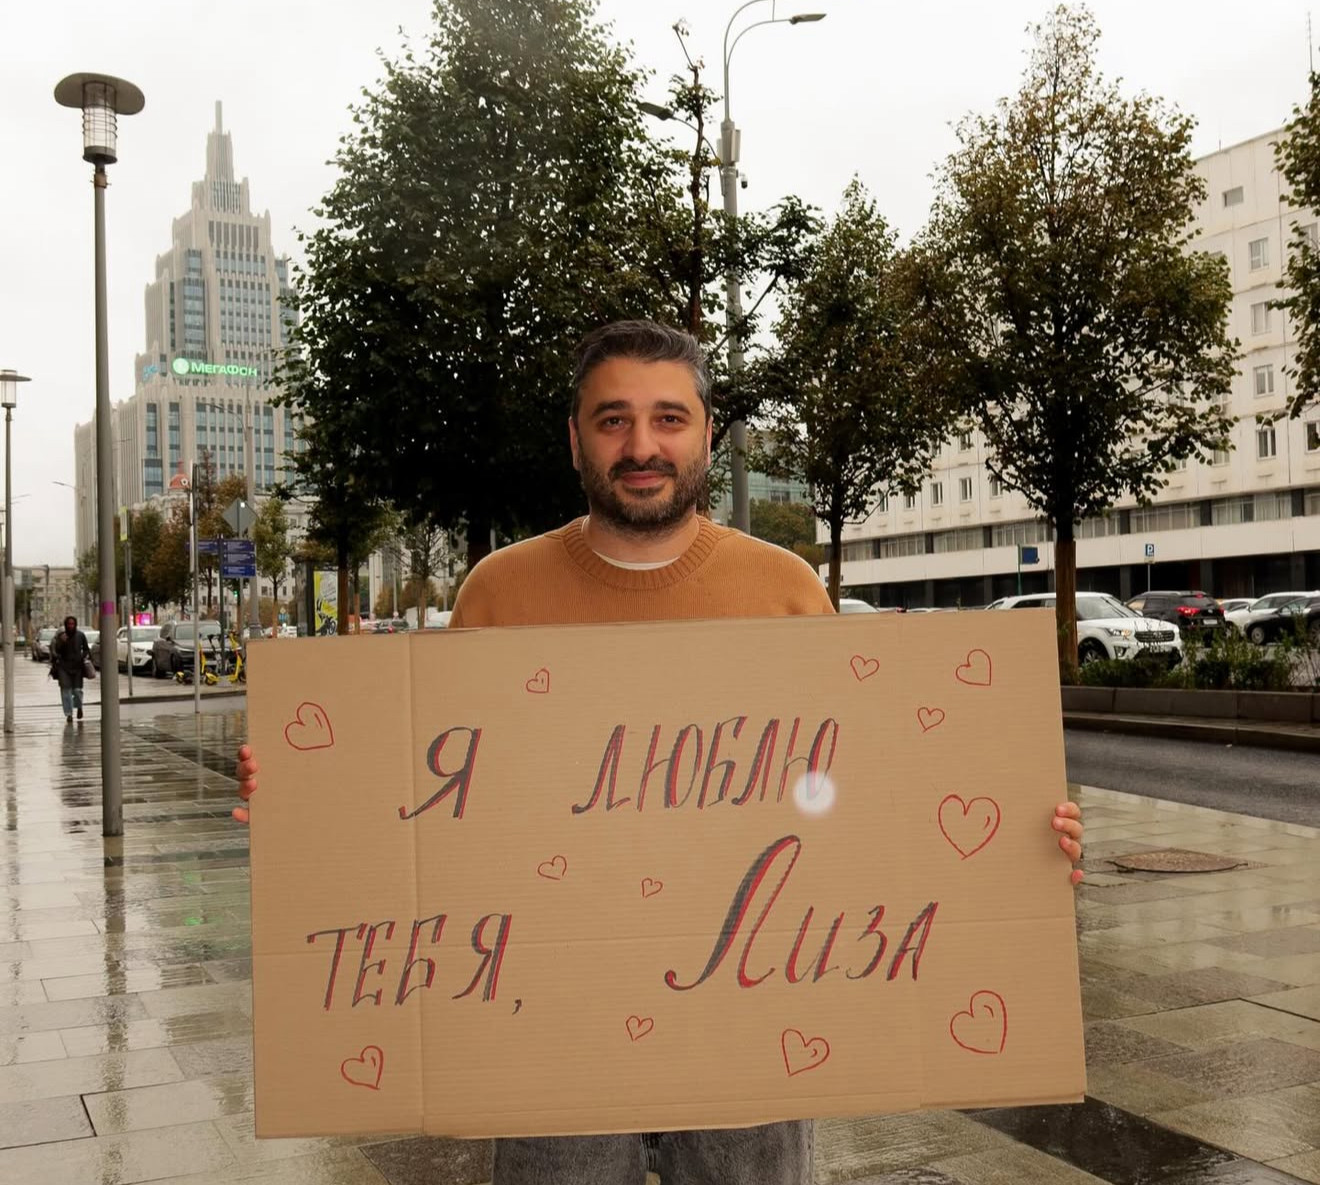 МегаФон
Я ЛЮБЛЮ
ТЕБЯ, Лиза
P